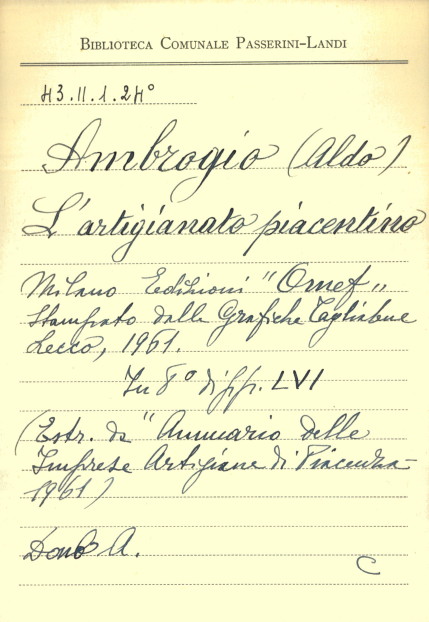 BIBLIOTECA COMUNALE PASSERINI-LANDI
43.II.1.24°
Ambrogio (Aldo)
L'artigianato piacentino
Milano Edizioni "Omef"
Stampato dalle Grafiche Tagliabue
Lecco, 1961.
In 8° di pp. LVI
(Estr. da "Annuario delle
Imprese Artigiane di Piacenza
1961)
Dono A.
C